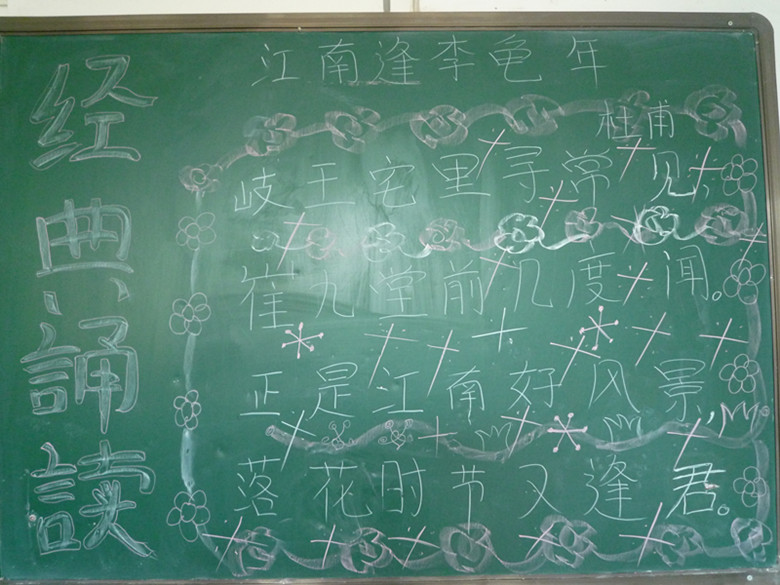 经典誦读
江南逢李龟年
杜甫
岐王宅里寻常见,
崔九堂前几度闻。
正是江南好风景,
落花时节又逢君。